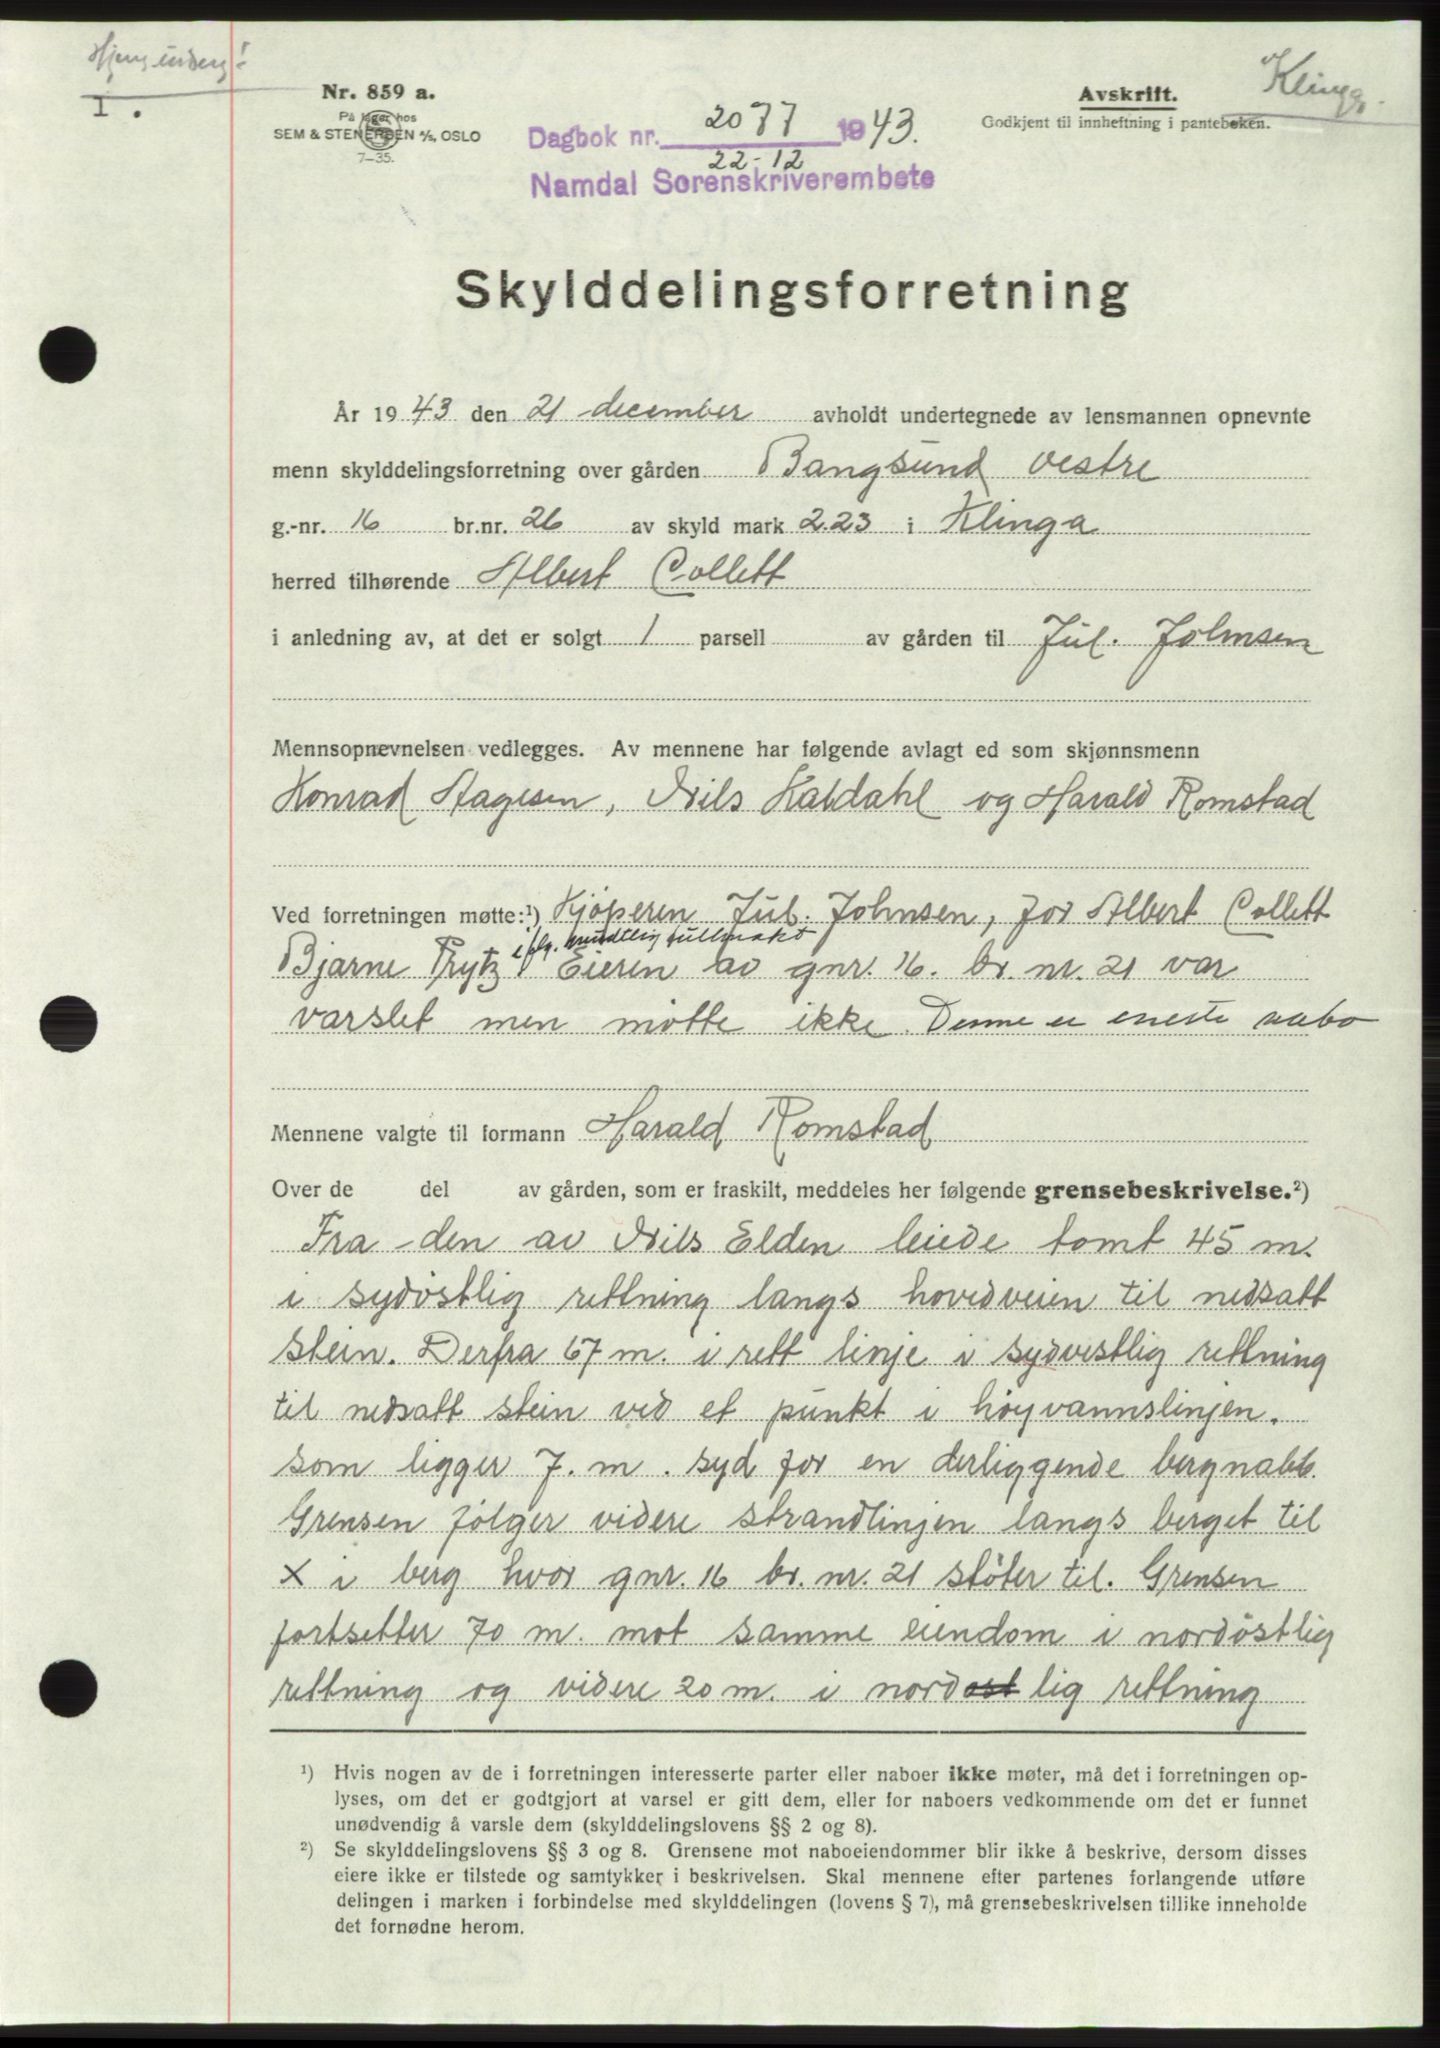 I.
Klinga.
Nr. 859 a.
På lager hos
SEM & STENERSEN A/S, OSLO
7—35.
Avskrift.
Godkjent til innheftning i panteboken.
Dagbok nr. 2077 1943.
22-12
Namdal Sorenskriverembete
Skylddelingsforretning
År 1943 den 21 december avholdt undertegnede av lensmannen opnevnte
menn skylddelingsforretning over gården Bangsund vestre
g.-nr. 16 br.nr. 26 av skyld mark 2.23 i Klinga
herred tilhørende Albert Collett
i anledning av, at det er solgt 1 parsell av gården til Jul. Johnsen
Mennsopnævnelsen vedlegges. Av mennene har følgende avlagt ed som skjønnsmenn
Konrad Aagesen, Nils Haldahl og Harald Romstad
Ved forretningen møtte:¹) Kjøperen Jul. Johnsen, for Albert Collett
iflg. mundtlig fullmakt
Bjarne Prytz Eieren av gnr. 16. br. nr. 21 var
varslet men møtte ikke. Denne er eneste nabo
Mennene valgte til formann Harald Romstad
Over de del av gården, som er fraskilt, meddeles her følgende grensebeskrivelse.²)
Fra den av Nils Elden leiede tomt 45 m.
i sydøstlig rettning langs hovedveien til nedsatt
stein. Derfra 67 m. i rett linje i sydvestlig rettning
til nedsatt stein ved et punkt i høyvannslinjen.
som ligger 7. m. syd for en derliggende bergnabb.
Grensen følger videre strandlinjen langs berget til
X i berg hvor gnr. 16 br. nr. 21 støter til. Grensen
fortsetter 70 m. mot samme eiendom i nordøstlig
rettning og videre 20 m. i nordostlig rettning
¹) Hvis nogen av de i forretningen interesserte parter eller naboer ikke møter, må det i forretningen op-
lyses, om det er godtgjort at varsel er gitt dem, eller for naboers vedkommende om det er funnet
unødvendig å varsle dem (skylddelingslovens §§ 2 og 8).
²) Se skylddelingslovens §§ 3 og 8. Grensene mot naboeiendommer blir ikke å beskrive, dersom disses
eiere ikke er tilstede og samtykker i beskrivelsen. Skal mennene efter partenes forlangende utføre
delingen i marken i forbindelse med skylddelingen (lovens § 7), må grensebeskrivelsen tillike inneholde
det fornødne herom.